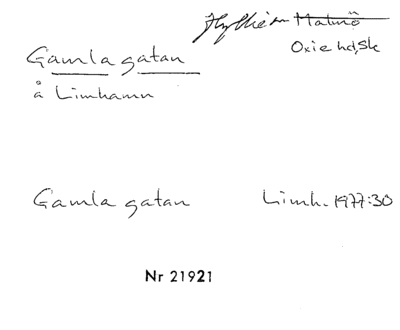 Hyllie sn Malmö
Oxie hd, Sk
Gamla gatan
å Limhamn
Gamla gatan Limh. 1977:30
Nr 21921